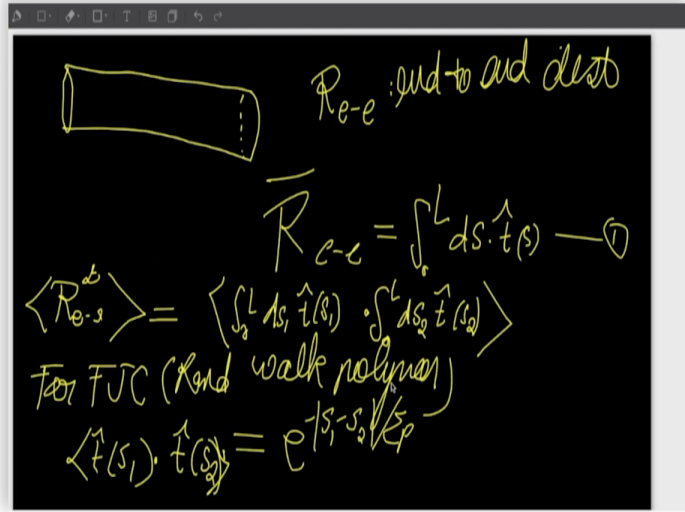 R_{e-e} : end to end dist
\overline{R}_{e-e} = ∫_0^L ds \hat{t}(s) — ①
⟨R_{e-e}^2⟩ = ⟨∫_0^L ds_1 \hat{t}(s_1) · ∫_0^L ds_2 \hat{t}(s_2)⟩
For FJC (Rand walk polymer)
⟨\hat{t}(s_1) · \hat{t}(s_2)⟩ = e^{-|s_1-s_2|/ξ_p}